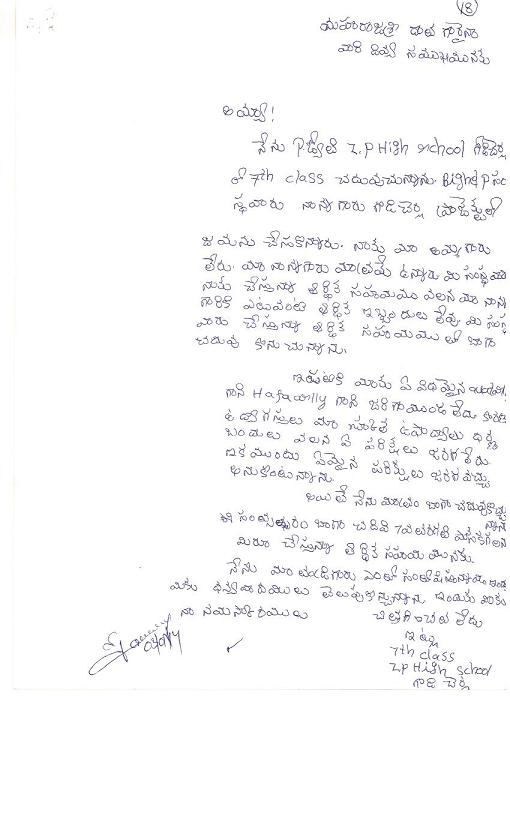 18
మహారాజశ్రీ దాత గారైన
వారి దివ్య సముఖమునకు
అమ్మా!
నేను P. జ్యోతి Z.P High school గడిచెర్ల
లో 7th class చదువుచున్నాను. Bighelp సం
స్థవారు నాన్నగారు గడిచెర్ల ప్రాజెక్ట్‌లో
జమను చేసుకొన్నారు. నాకు మా అమ్మగారు
లేరు. మా నాన్నగారు మాత్రమే ఉన్నారు మి సంస్థ వారు
నాకు చేస్తున్న ఆర్థిక సహయము వలన మా నాన్న
గారికి ఎటువంటి ఆర్థిక ఇబ్బందులు లేవు మి సంస్థ
వారు చేస్తున్న ఆర్థిక సహయము తో బాగా
చదువు కొనుచున్నాను.
ఇప్పటికి మాకు ఏ విధమైన
గాని Hafawlly గాని జరిగాముండ లేదు కారణ
ఉద్యోగస్తులు మా స్కూలు ఉపాధ్యాలు ధర్నా
బందులు వలన ఏ పరీక్షలు జరగలేదు
ఇక ముందు ఏమైన పరీక్షలు జరగవచ్చు
అనుకుంటున్నాను.
అయితే నేను మాత్రం బాగా చదువుకొన్న
ఈ సంవత్సరం బాగా చదివి 7వతరగతి
మీరూ చేస్తున్న ఆర్థిక సహయ మునకు.
నేను మా తండ్రిగారు ఎంతో సంతోషిస్తున్నాము
మికు ధన్యవాదములు తెలుపుకొన్నుచున్నాను ఇంతకు
నా నమస్కారములు చిత్తగించవ లేదు
ఇట్లు
7th class
Z.P High school
గడి చెర్ల